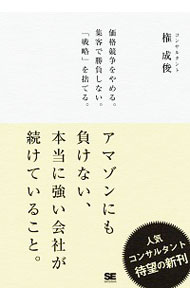 価格競争をやめる。
集客で勝負しない。
「戦略」を捨てる。
コンサルタント
権 成俊
アマゾンにも
負けない、
本当に強い会社が
続けていること。
人気
コンサルタント
待望の新刊
SE
SHOEISHA